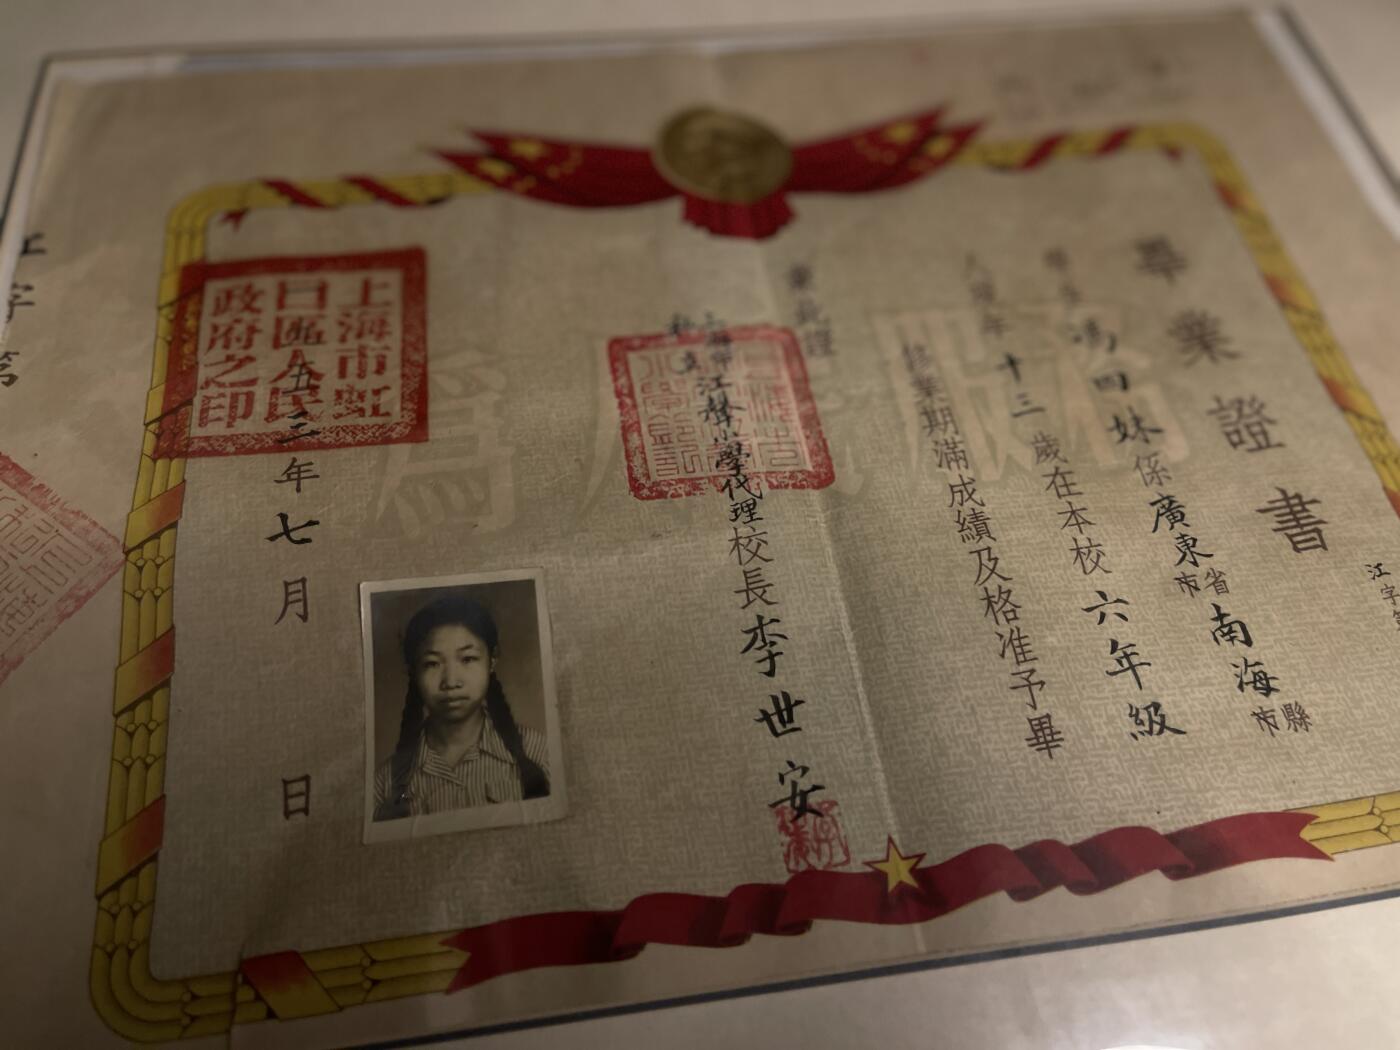 畢業證書
學生馮四妹係廣東省市南海縣市
人現年十三歲在本校六年級
修業期滿成績及格准予畢
業此證
上海市江聲小學代理校長李世安
五三年七月 日
上海市虹
口區人民
政府之印
為人民服務
江字第
江字